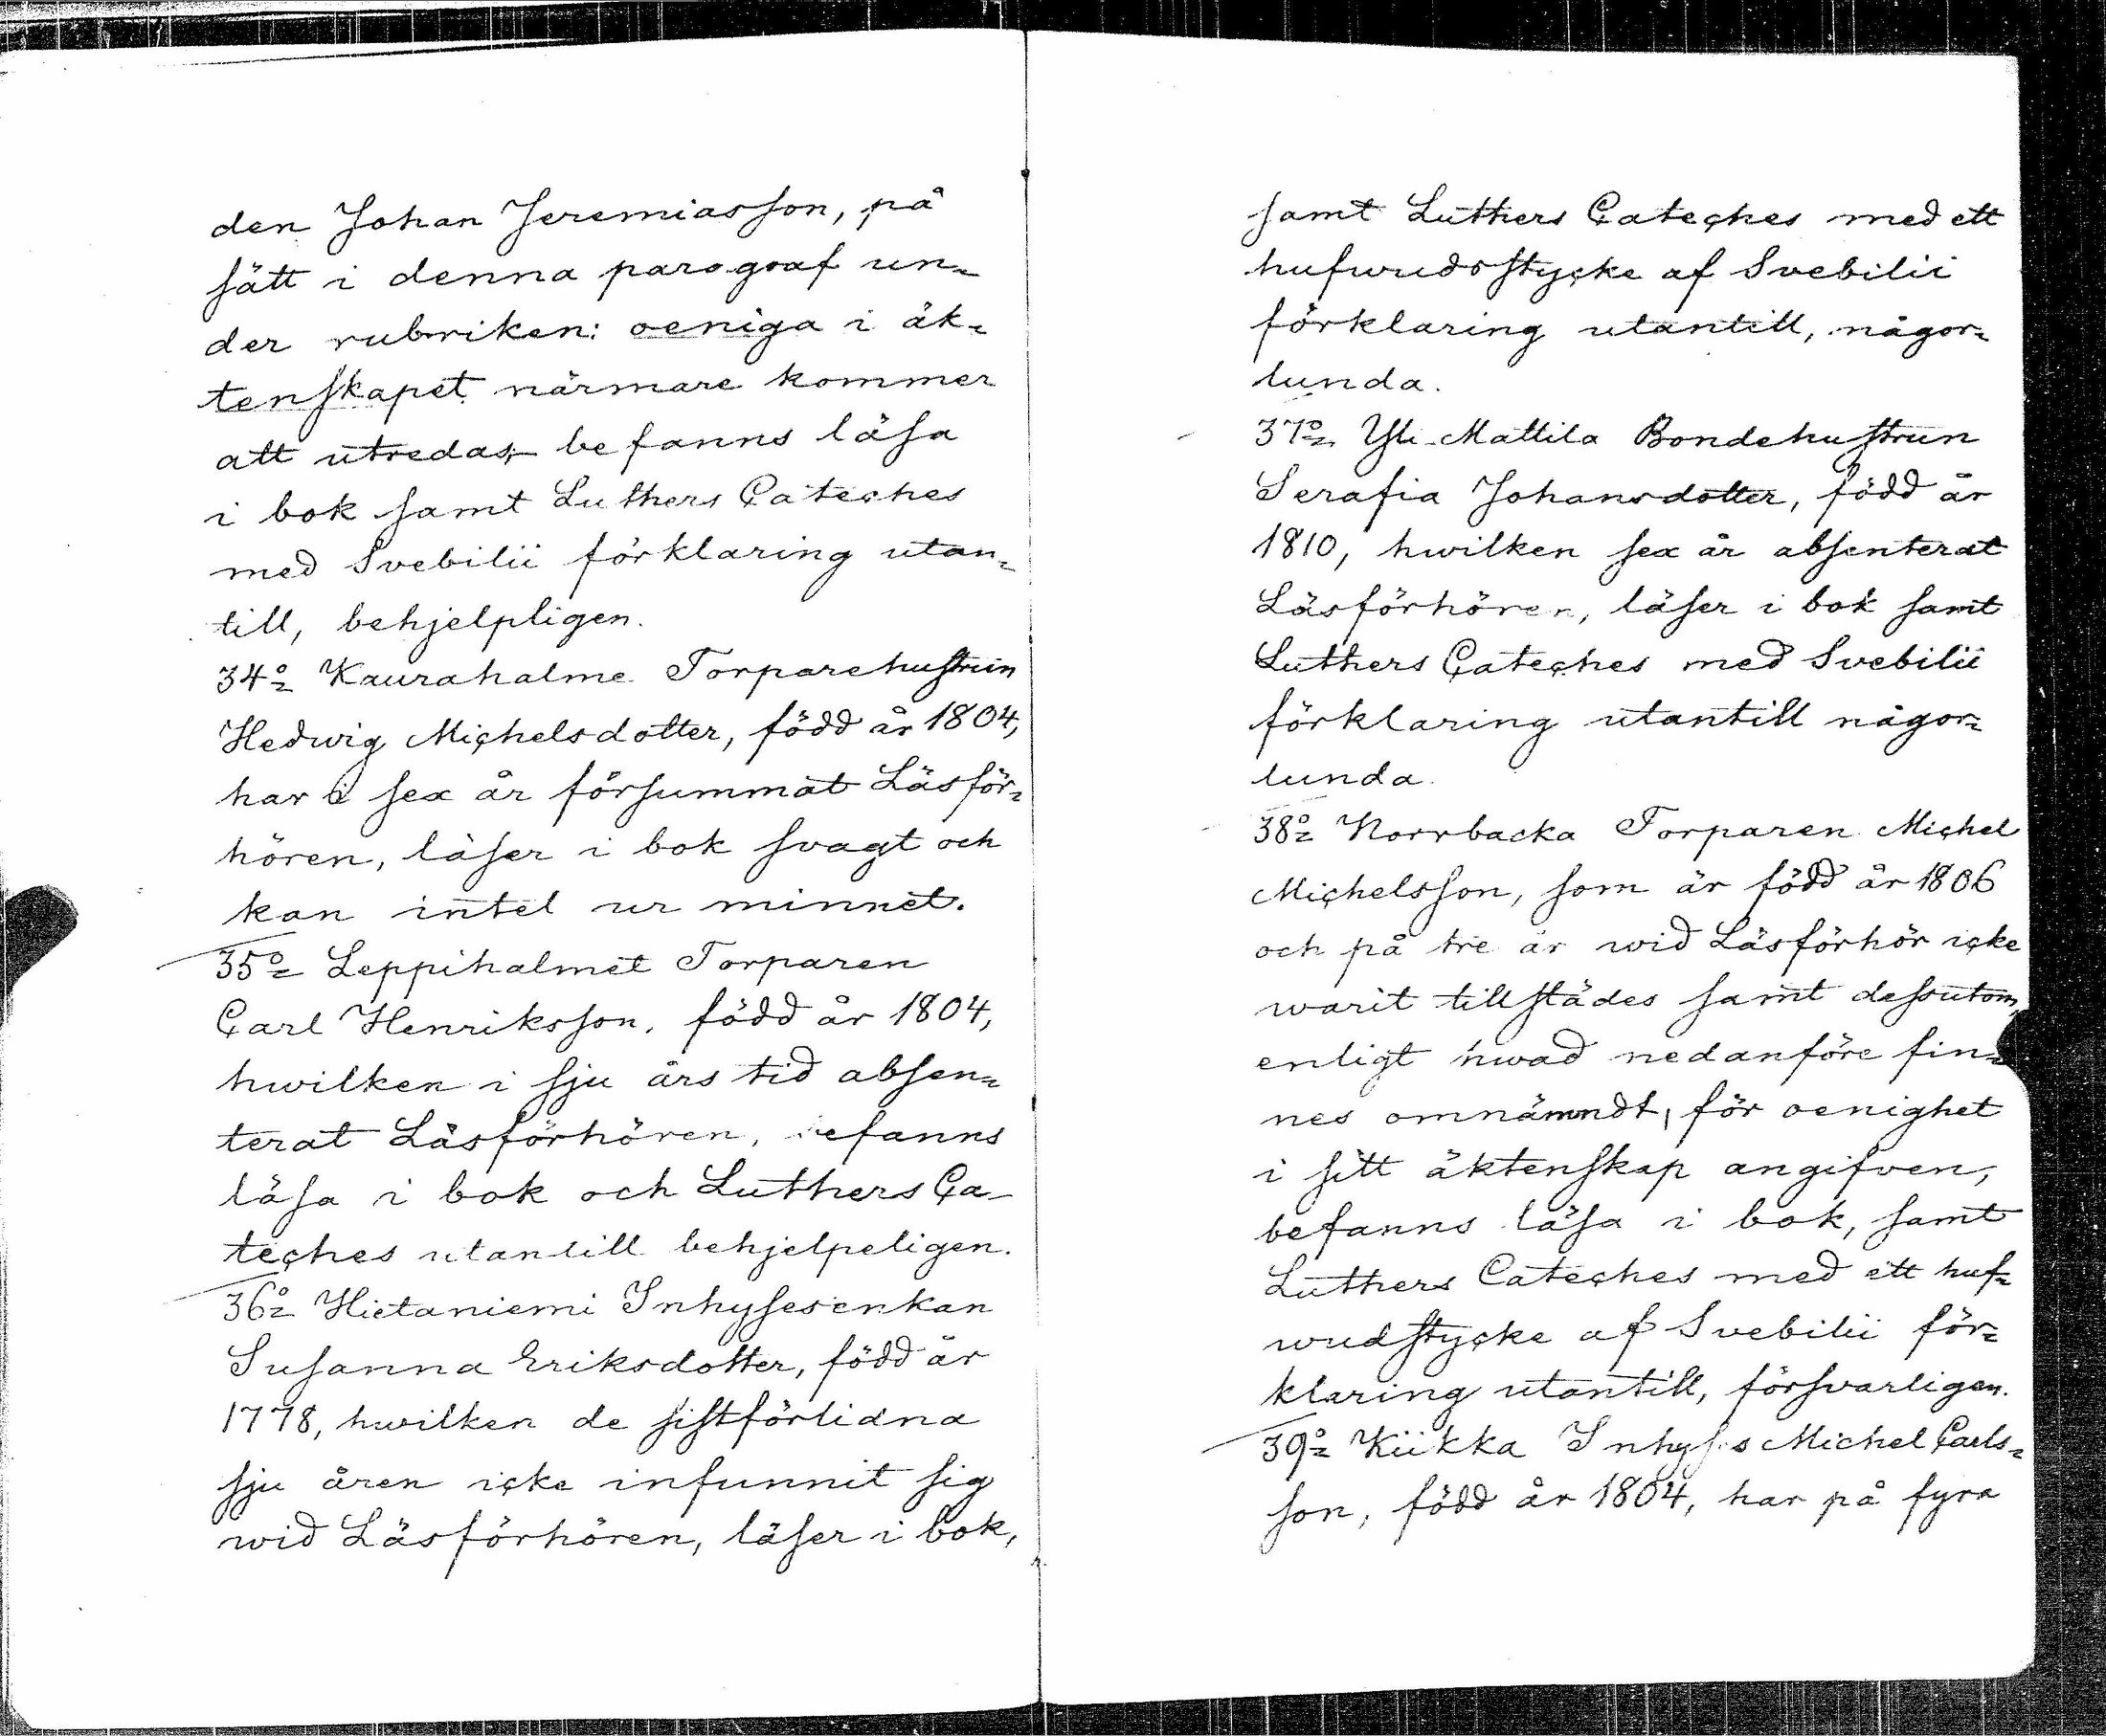 den Johan Jeremiasson, på
sätt i denna paragraf un=
der rubriken: oeniga i äk=
tenskapet närmare kommer
att utredas, befanns läsa
i bok samt Luthers Cateches
med Svebilii förklaring utan=
till, behjelpligen.
34o= Kaurahalme Torparehustrun
Hedwig Michelsdotter, född år 1804,
har i sex år försummat Läsför=
hören, läser i bok svagt och
kan intet ur minnet.
35o= Leppihalmet Torparen
Carl Henriksson, född år 1804,
hwilken i sju års tid absen=
terat Läsförhören, befanns
läsa i bok och Luthers Ca-
teches utantill behjelpeligen.
36o= Hietaniemi Inhysesenkan
Susanna Eriksdotter, född år
1778, hwilken de sistförlidna
sju åren icke infunnit sig
wid Läsförhören, läser i bok,
samt Luthers Cateches med ett
hufwudsstycke af Svebilii
förklaring utantill, någor=
lunda.
37o= Yli-Mattila Bondehustrun
Serafia Johansdotter, född år
1810, hwilken sex år absenterat
Läsförhören, läser i bok samt
Luthers Cateches med Svebilii
förklaring utantill någor=
lunda.
38o= Norrbacka Torparen Michel
Michelsson, som är född år 1806
och på tre år wid Läsförhör icke
warit tillstädes samt dessutom,
enligt hwad nedanföre fin=
nes omnämndt, för oenighet
i sitt äktenskap angifven,
befanns läsa i bok, samt
Luthers Cateches med ett huf=
wudstycke af Svebilii för=
klaring utantill, försvarligen.
39o= Kiikka Inhyses Michel Carls=
son, född år 1804, har på fyra